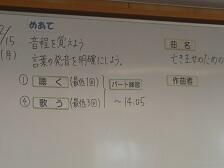 2/15
(月)
めあて
音程を覚えよう
言葉の発音を明確にしよう。
① 聴く (最低1回)
④ 歌う (最低3回)
パート練習
～14:05
曲名
亡き王女のための
作曲者